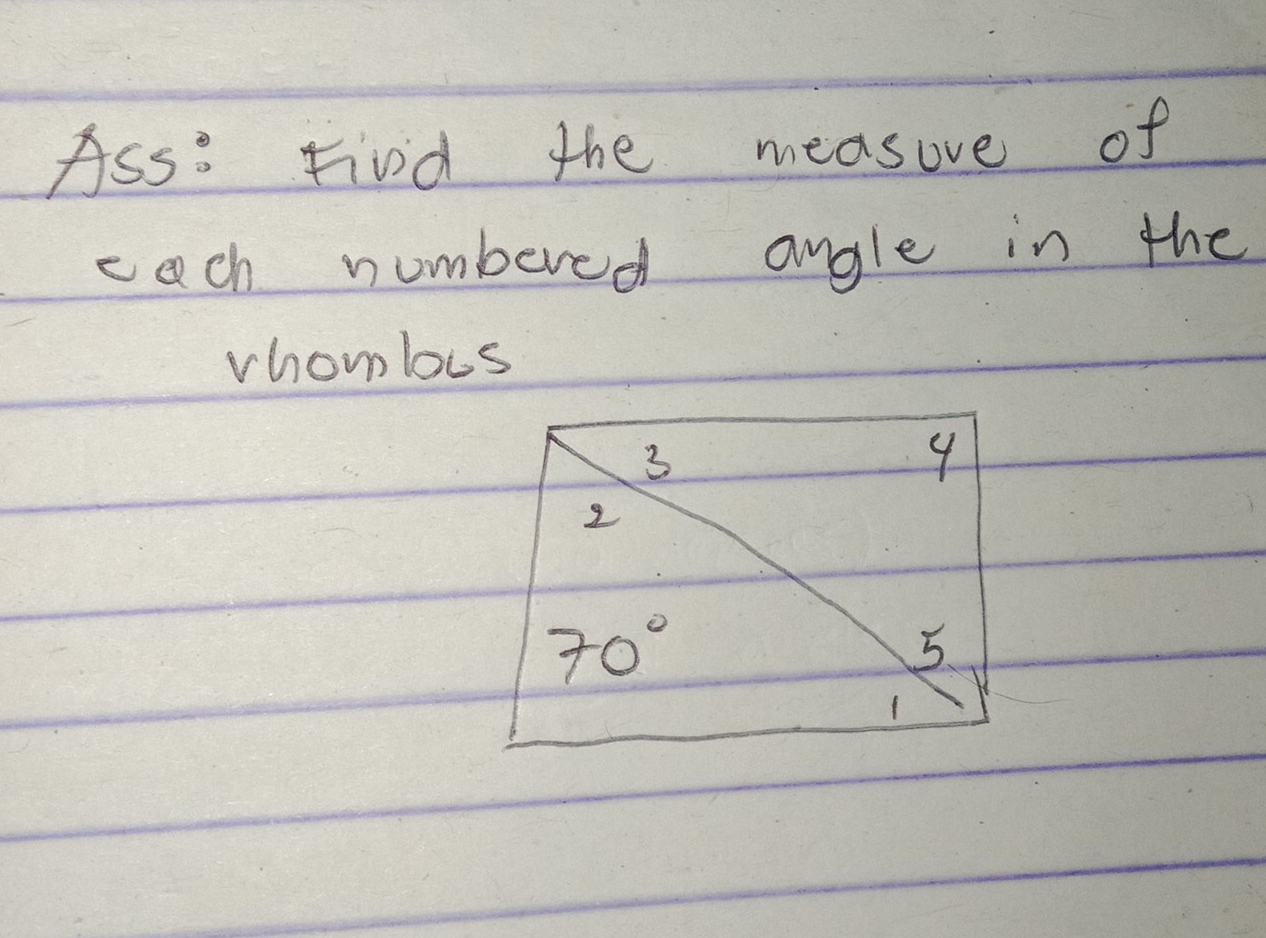 Ass: Find the measure of
each numbered angle in the
rhombus
3 4
2
70° 5
1